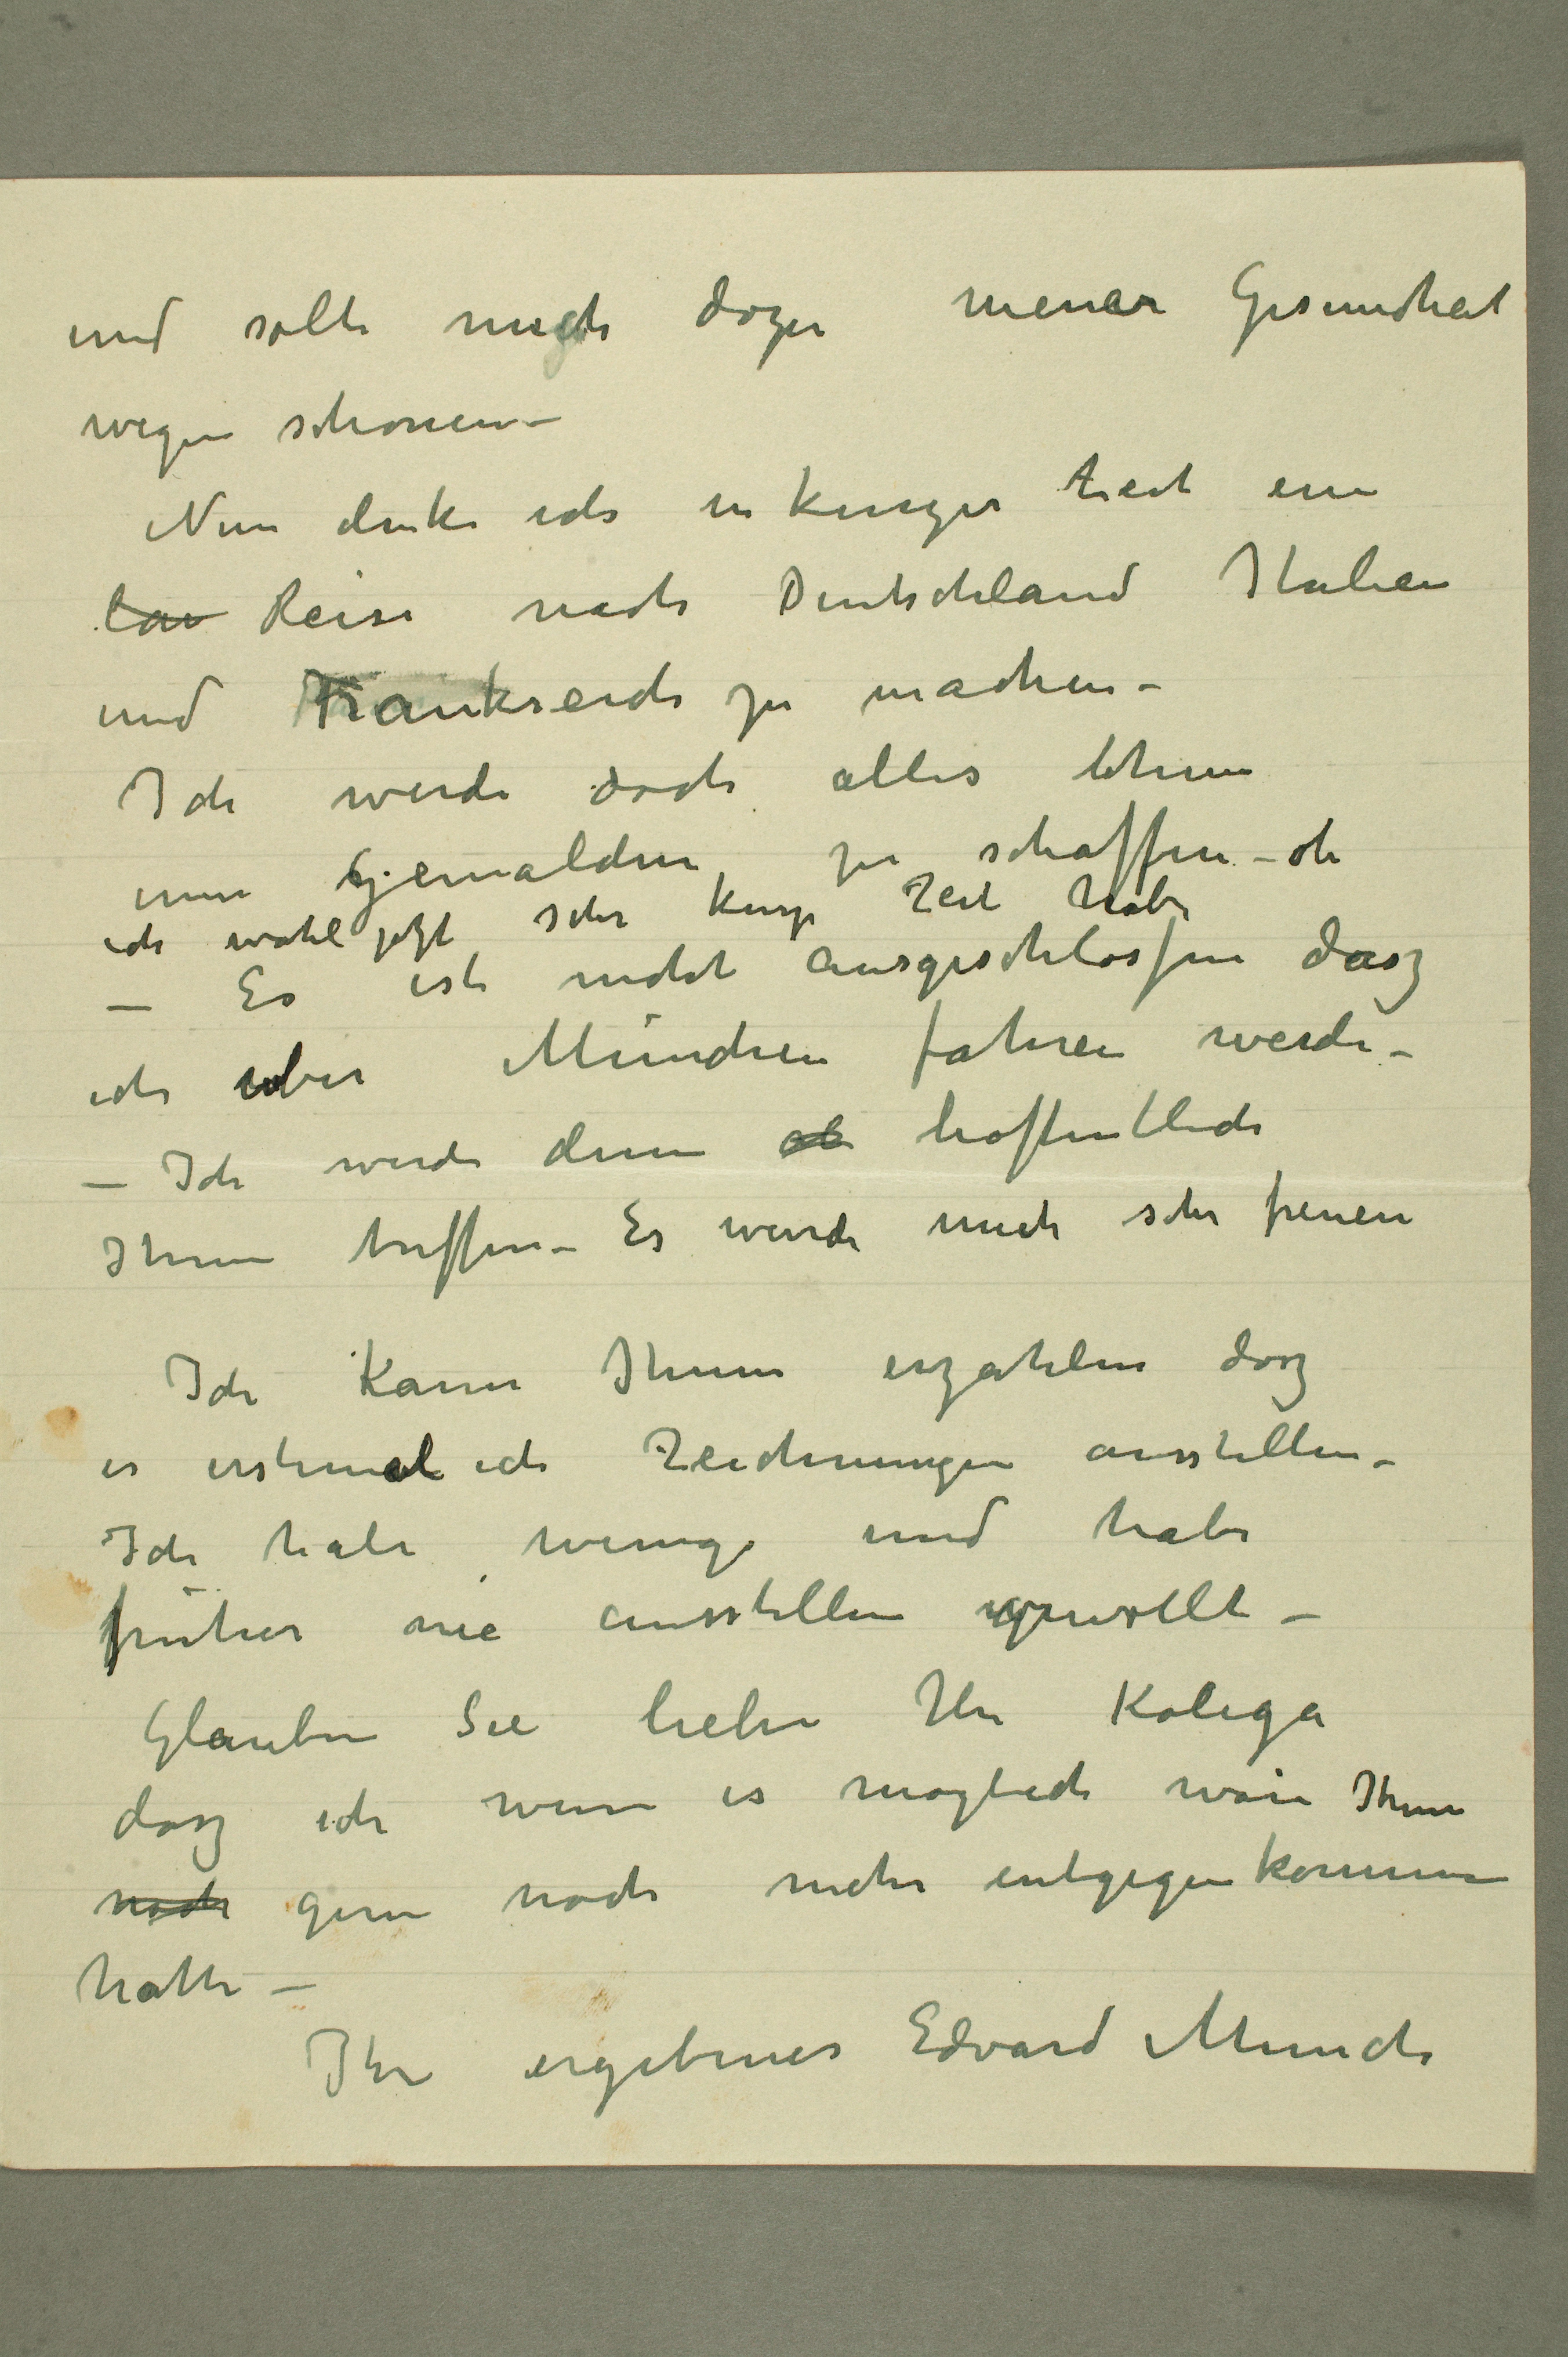 und solte mich dazu meiner Gesundheit
wegen schonen –
Nun denke ich in kurzer Zeit eine
lan Reise nach Deutschland Italien
und Frankreich zu machen –
Ich werde doch alles thun
um Gemälden zu schaffen – ob
ich wohl jetzt sehr kurze Zeit habe
– Es ist nicht ausgeschlossen dasz
ich über München fahren werde –
– Ich werde denn hoffentlich
Ihnen treffen – Es würde mich sehr freuen
Ich kann Ihnen erzahlen dasz
es erstemal ich Zeichnungen ausstellen –
Ich habe wenige und habe
früher nie ausstellen gewollt –
Glauben Sie lieber Hr Kolega
dasz ich wenn es moglich wäre Ihnen
noch gern noch mehr entgegenkommen
hatte –
Ihr ergebener Edvard Munch